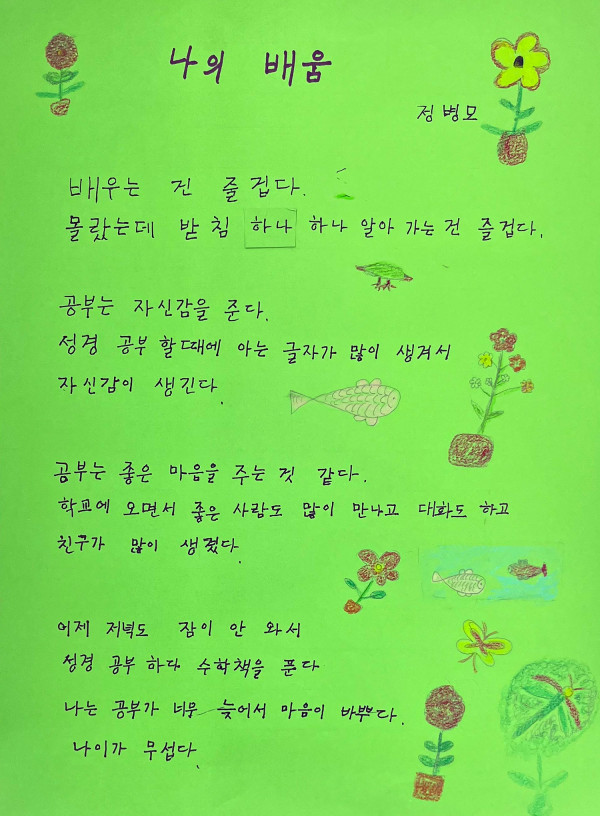 나의 배움
정병모
배우는 건 즐겁다.
몰랐는데 받침 하나 하나 알아 가는 건 즐겁다.
공부는 자신감을 준다.
성경 공부 할때에 아는 글자가 많이 생겨서
자신감이 생긴다.
공부는 좋은 마음을 주는 것 같다.
학교에 오면서 좋은 사람도 많이 만나고 대화도 하고
친구가 많이 생겼다.
어제 저녁도 잠이 안 와서
성경 공부 하다 수학책을 푼다
나는 공부가 너무 늦어서 마음이 바쁘다.
나이가 무섭다.